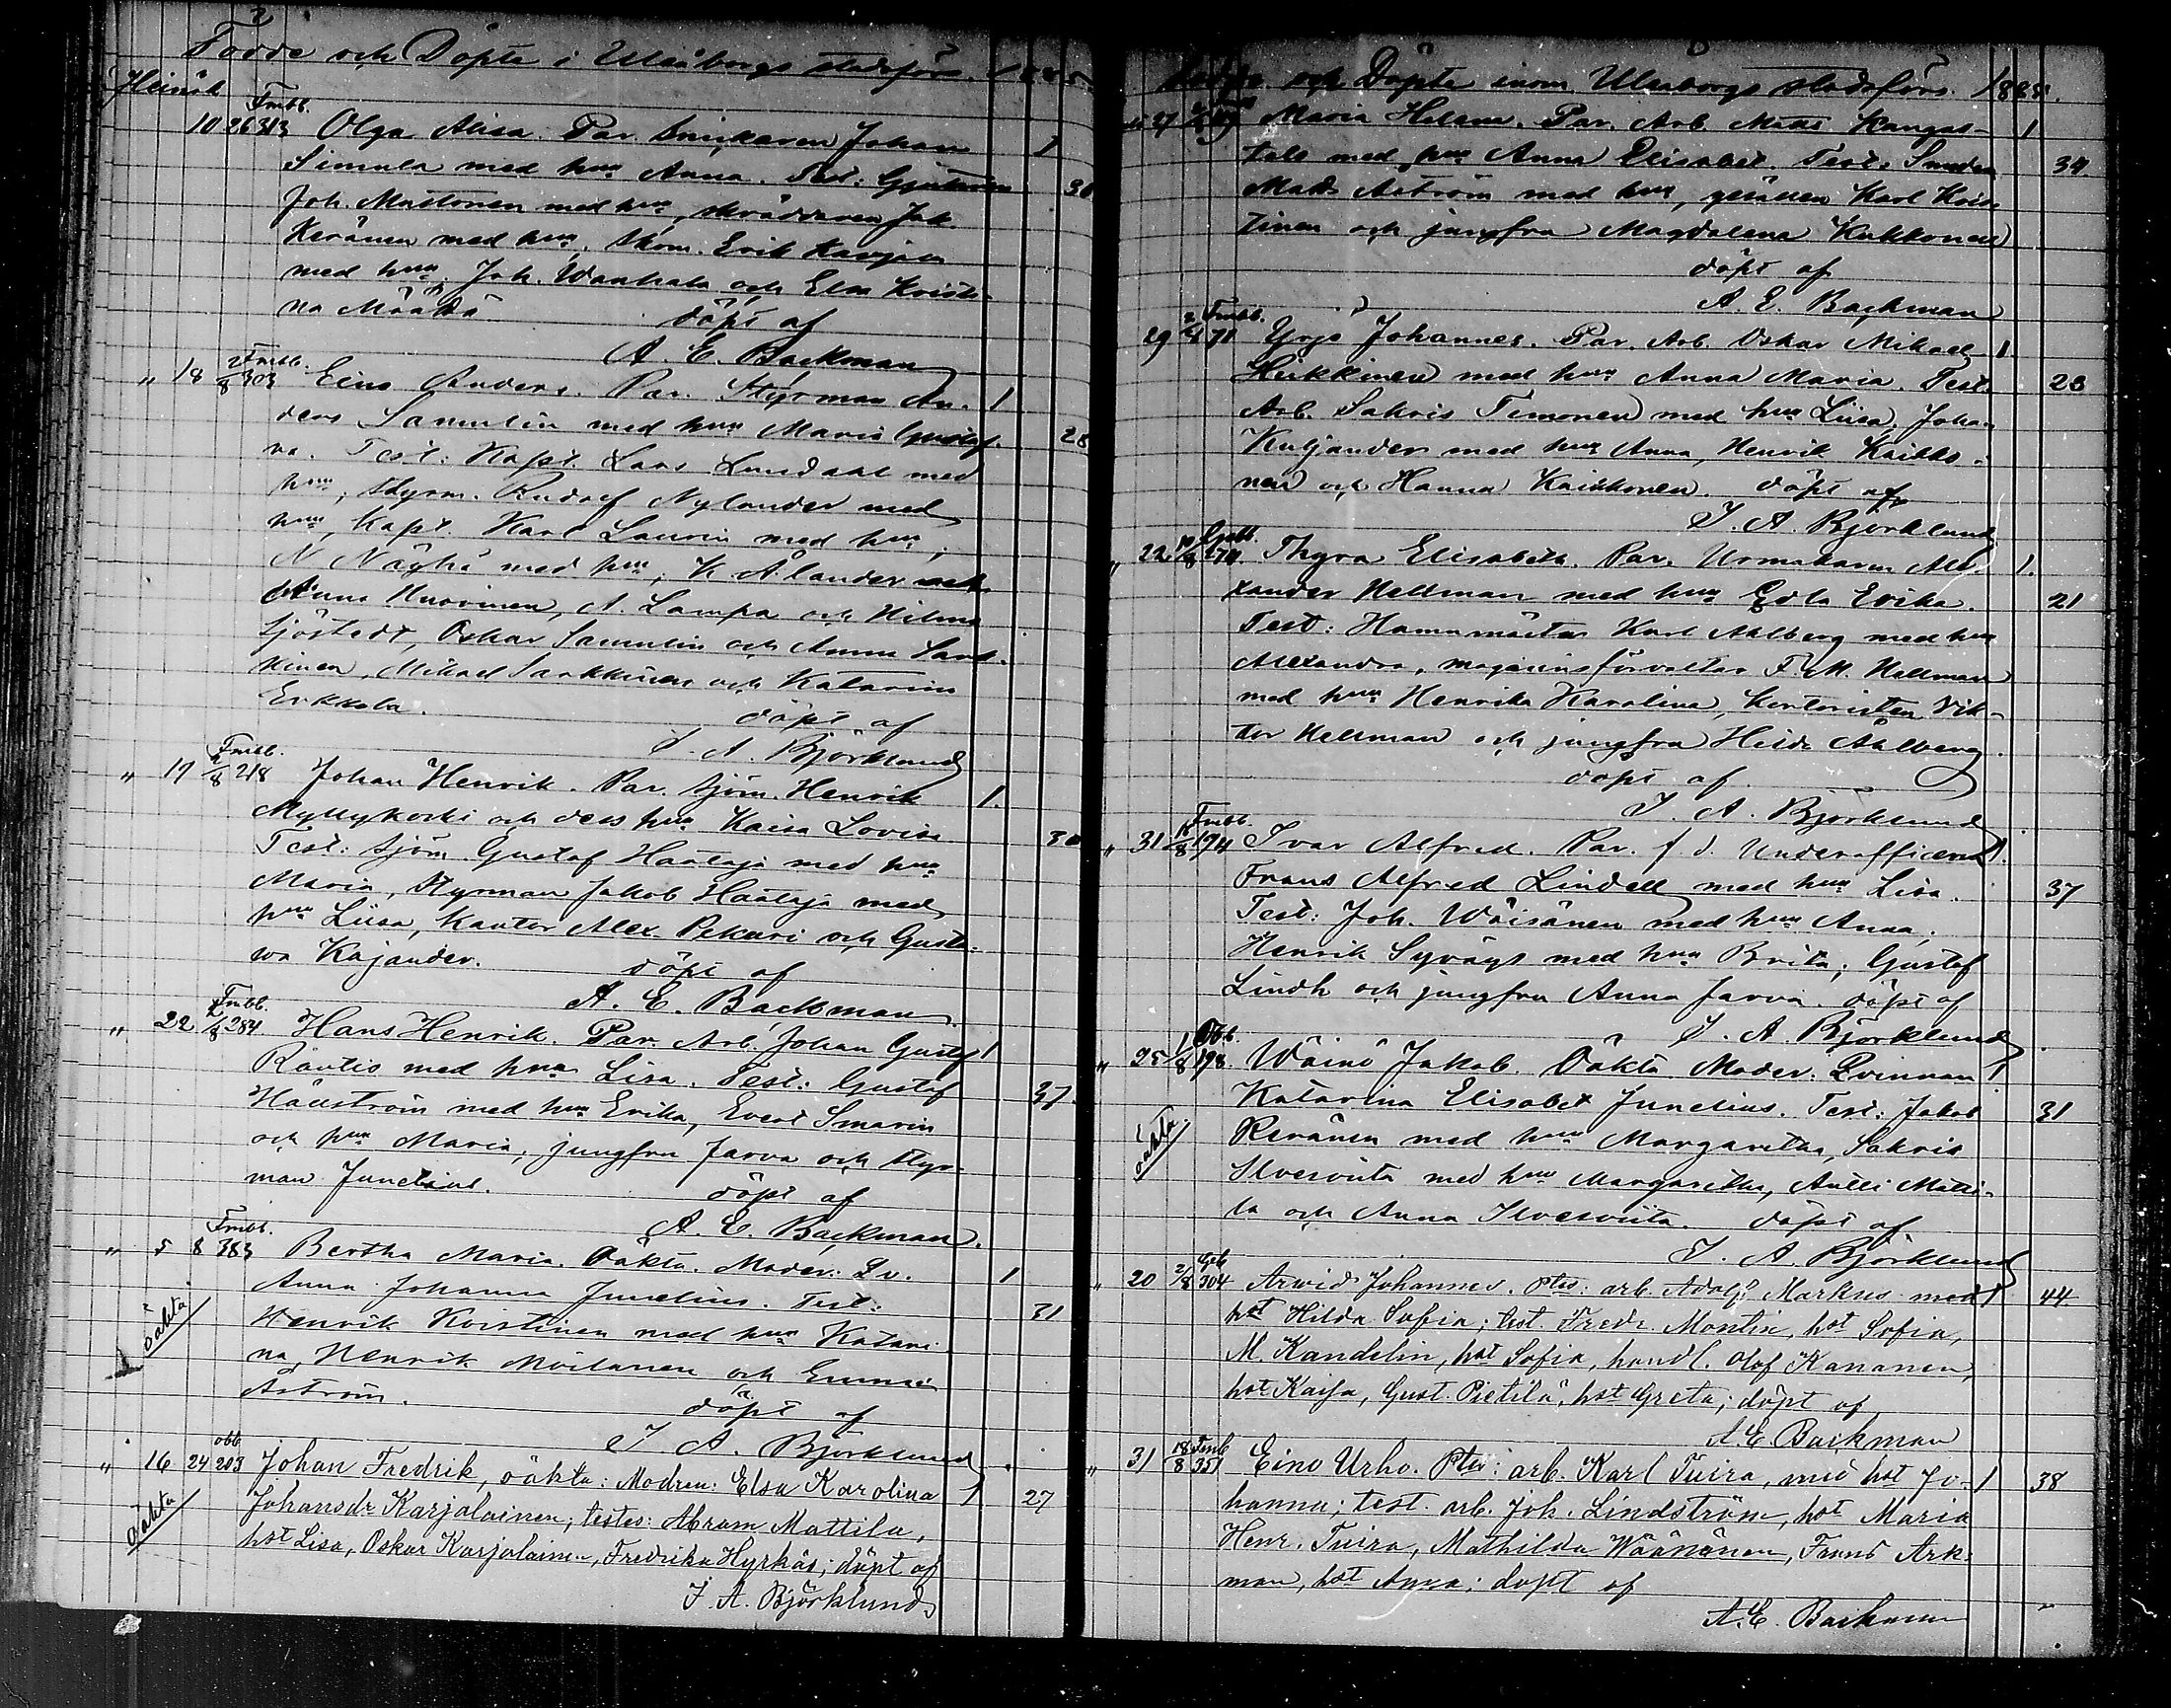 Födde och Döpte i Uleåborgs stadsförs. 1885.
Heinäk.
Fmbb.
10 26 313 Olga Alisa. Par. Snickaren Johan 1
Simula med hu Anna. Test: Gjutaren 30
Joh. Mustonen med hu, skräddaren Joh.
Keränen med hu, Skom. Erik Karjala
med hu, Joh. Wanhala och Elsa Kristi-
na Määttä döpt af
A. E. Backman
Fmbb.
" 18 2/8 303 Eino Anders. Par. Styrman An- 1
ders Samulin med hu Maria Gustaf- 28
va. Test: Kapt. Lars Lundahl med
hu, styrm. Rudolf Nylander med
hu, Kapt. Karl Laurin med hu,
N Näyhä med hu, K. Ålander och
Anna Huovinen, A. Lampa och Hilma
Sjöstedt, Oskar Samulin och Anna Sark-
kinen, Mikael Sarkkinen och Katarina
Erkkola. döpt af
J. A. Björklund
Fmbb.
" 17 2/8 218 Johan Henrik. Par. Sjöm. Henrik 1.
Myllykoski och dess hu Kaisa Lovisa 30
Test: Sjöm. Gustaf Haataja med hu
Maria, Styrman Jakob Haataja med
hu Liisa, Kantor Alex. Pekuri och Gusta-
va Kajander. döpt af
A. E. Backman
Fmbb.
" 22 2/8 284 Hans Henrik. Par. Arb. Johan Gustaf 1
Rautio med hu Lisa. Test: Gustaf 37.
Hällström med hu Erika, Evert Smarin
och hu Maria, jungfru Jarva och styr-
man Junelius. döpt af
A. E. Backman.
Fmbb.
" 5 8 383 Bertha Maria. Oäkta. Moder: Qv. 1
oäkta Anna Johanna Junelius. Test: 31
Henrik Kristinen med hu Katari-
na, Henrik Moilanen och Emma
Åström. döpt af
J. A. Björklund
obb
" 16 24 203 Johan Fredrik, oäkta: Modren: Elsa Karolina 1 27
oäkta Johansdr Karjalainen; testes: Abram Mattila,
hst Lisa, Oskar Karjalainen, Fredrika Hyrkäs; döpt af
J. A. Björklund
Födde och Döpte inom Uleaborgs stadsförs. 1885.
" 27 Maria Helena. Par. Arb. Matts Kangas- 1
talo med hu Anna Elisabet. Test: Smeden 34
Matts Åström med hu, gesällen Karl Kris-
tinen och jungfru Magdalena Kukkonen
döpt af
A. E. Backman
Fmbb.
29 2/8 71 Yrjö Johannes. Par. Arb. Oskar Mikael 1
Heikkinen med hu Anna Maria. Test. 23
Arb. Sakris Timonen med hu Liisa, Johan
Kuljander med hu Anna, Henrik Kaikko-
nen och Hanna Kaikkonen. döpt af
J. A. Björklund
" 22 10/8 270 Thyra Elisabeth. Par. Urmakaren Ale- 1.
xander Hellman med hu Edla Erika. 21
Test: Hamnmästar Karl Ahlberg med hu
Alexandra, magasinsförvaltar F. M. Hellman
med hu Henrika Karolina, Kontoristen Vik-
tor Hellman och jungfru Hilda Ahlberg.
döpt af
J. A. Björklund
Fmbb.
" 31 16/8 194 Ivar Alfred. Par. f. d. Underofficeren 1.
Frans Alfred Lindell med hu Lisa. 37
Test: Joh. Wäisänen med hu Anna,
Henrik Syväys med hu Brita, Gustaf
Lindh och jungfru Anna Jarva. döpt af
J. A. Björklund
Obb.
" 25 1/8 198 Wäinö Jakob. Oäkta Moder. Qvinnan 1
Katarina Elisabet Junelius. Test: Jakob 31
oäkta Keränen med hu Margaretha, Sakris
Ilvesviita med hu Margaretha, Antti Matti-
la och Anna Ilvesviita. döpt af
J. A. Björklund
" 20 2/8 304 Arwid Johannes. Ptes: arb. Adolf Markus med 1 44.
hst Hilda Sofia; test. Fredr. Montin, hst Sofia,
M. Kandelin, hst Sofia, handl. Olof Kananen,
hst Kaisa, Gust. Pietilä, hst Greta; döpt af
A. E. Backman
" 31 18/8 351 Eino Urho. Ptes: arb. Karl Tuira, med hst Jo- 1 38
hanna; test. arb. Joh. Lindström, hst Maria
Henr. Tuira, Mathilda Wäänänen, Frans Ark-
man, hst Anna; döpt af
A. E. Backman